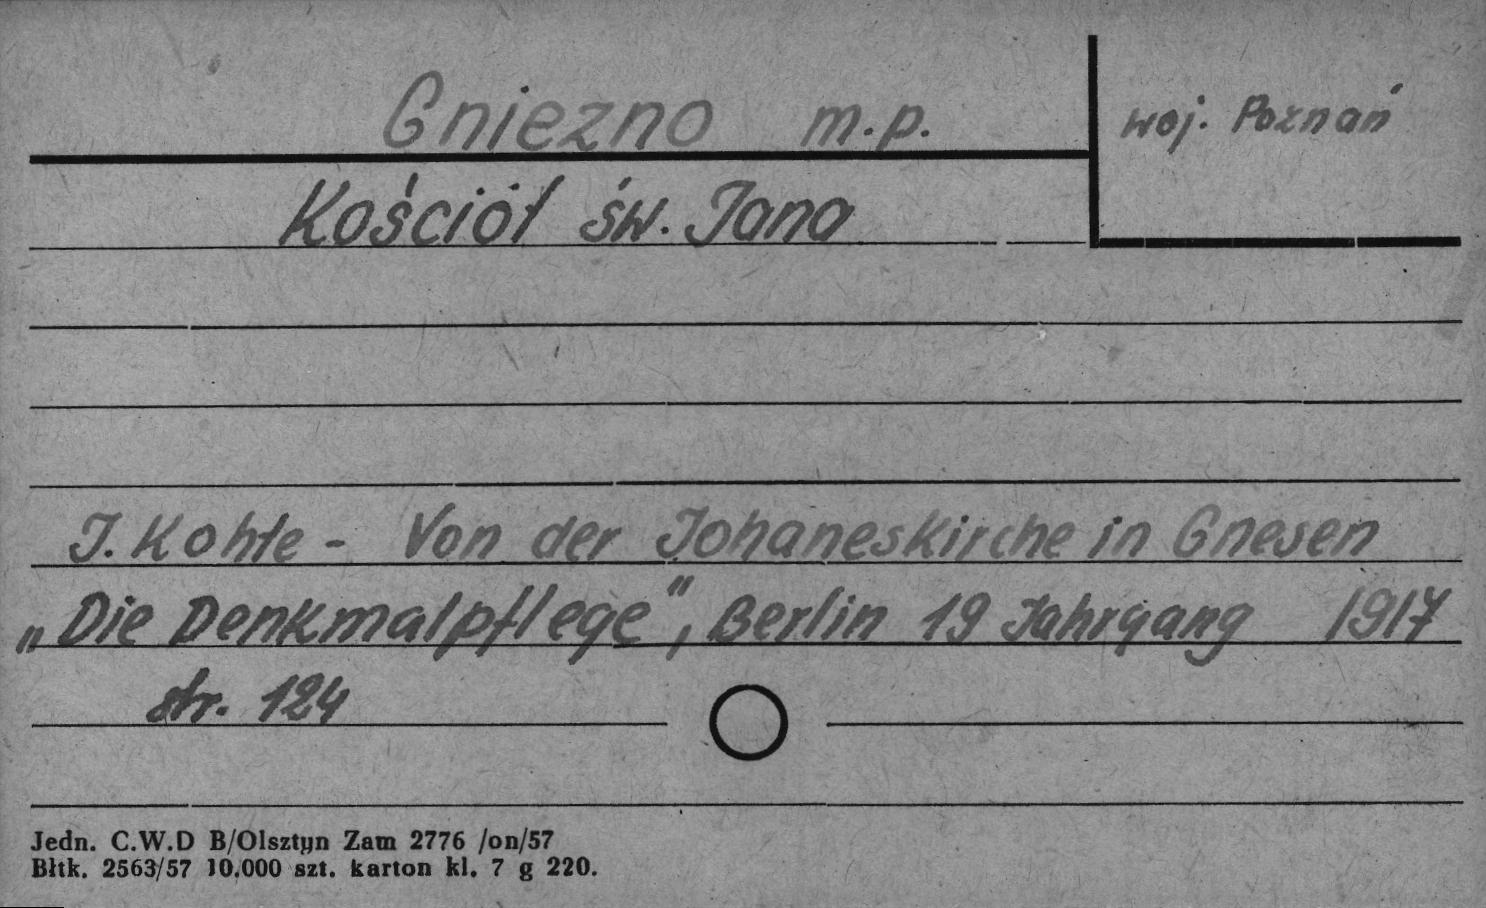 Gniezno m.p.
woj. Poznań
Kościół św. Jana
J. Kohte - Von der Johaneskirche in Gnesen
„Die Denkmalpflege", Berlin 19 Jahrgang 1917
str. 124
Jedn. C.W.D B/Olsztyn Zam 2776 /on/57
Błtk. 2563/57 10.000 szt. karton kl. 7 g 220.